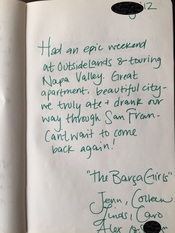 12
Had an epic weekend
at OutsideLands & touring
Napa Valley. Great
apartment, beautiful city-
we truly ate + drank our
way through San Fran-
Can't wait to come
back again!
"The Barça Girls"
Jenn, Colleen
Lindsi, Caro
Alex